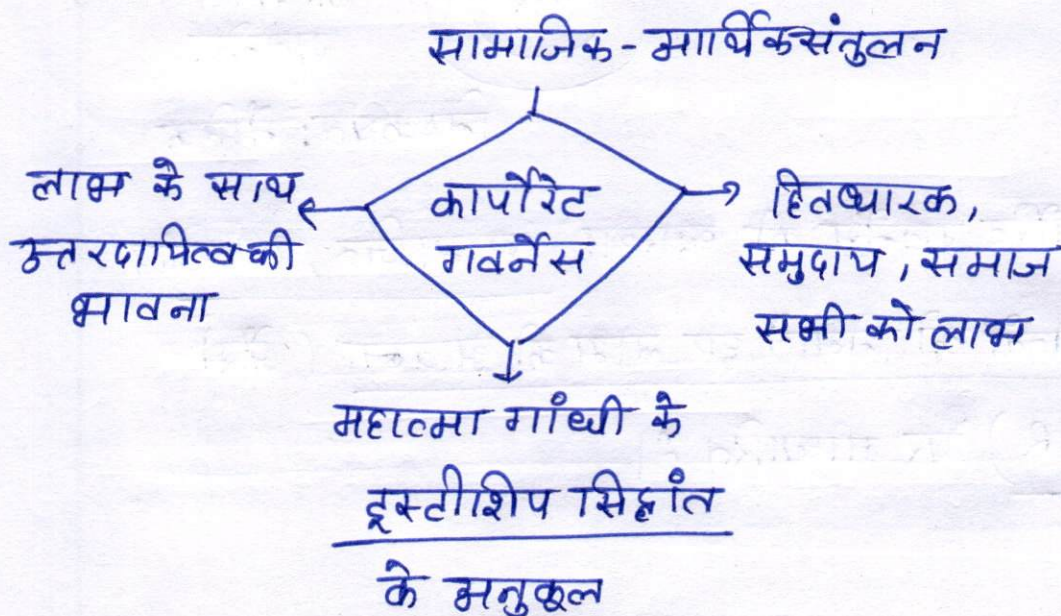 सामाजिक - आर्थिक संतुलन
लाभ के साथ
उत्तरदायित्व की
भावना
कार्पोरेट
गवर्नेंस
हितधारक,
समुदाय, समाज
सभी को लाभ
महात्मा गांधी के
ट्रस्टीशिप सिद्धांत
के अनुकूल